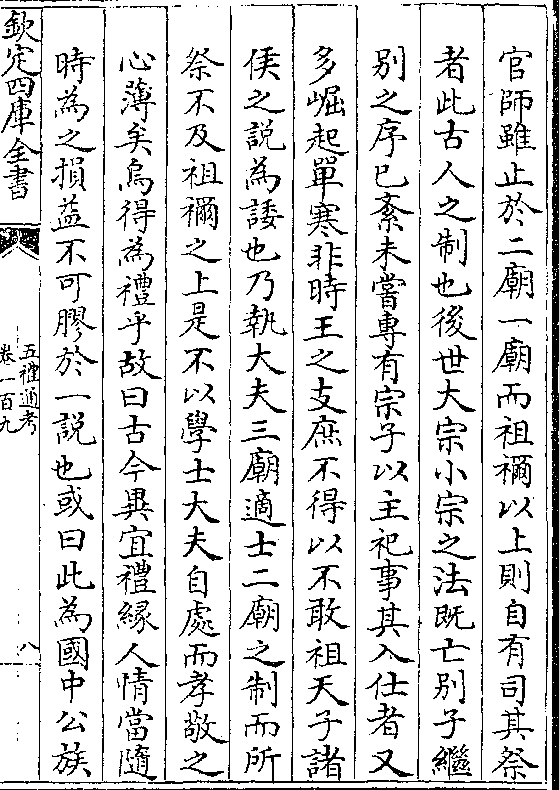 官師雖止於二廟一廟而祖禰以上則自有司其祭
者此古人之制也後世大宗小宗之法既亡別子繼
別之序已紊未嘗專有宗子以主祀事其入仕者又
多崛起單寒非時王之支庶不得以不敢祖天子諸
侯之說為諉也乃執大夫三廟適士二廟之制而所
祭不及祖禰之上是不以學士大夫自處而孝敬之
心薄矣烏得為禮乎故曰古今異宜禮緣人情當隨
時為之損益不可膠於一說也或曰此為國中公族
欽定四庫全書
五禮通考
卷一百九
八